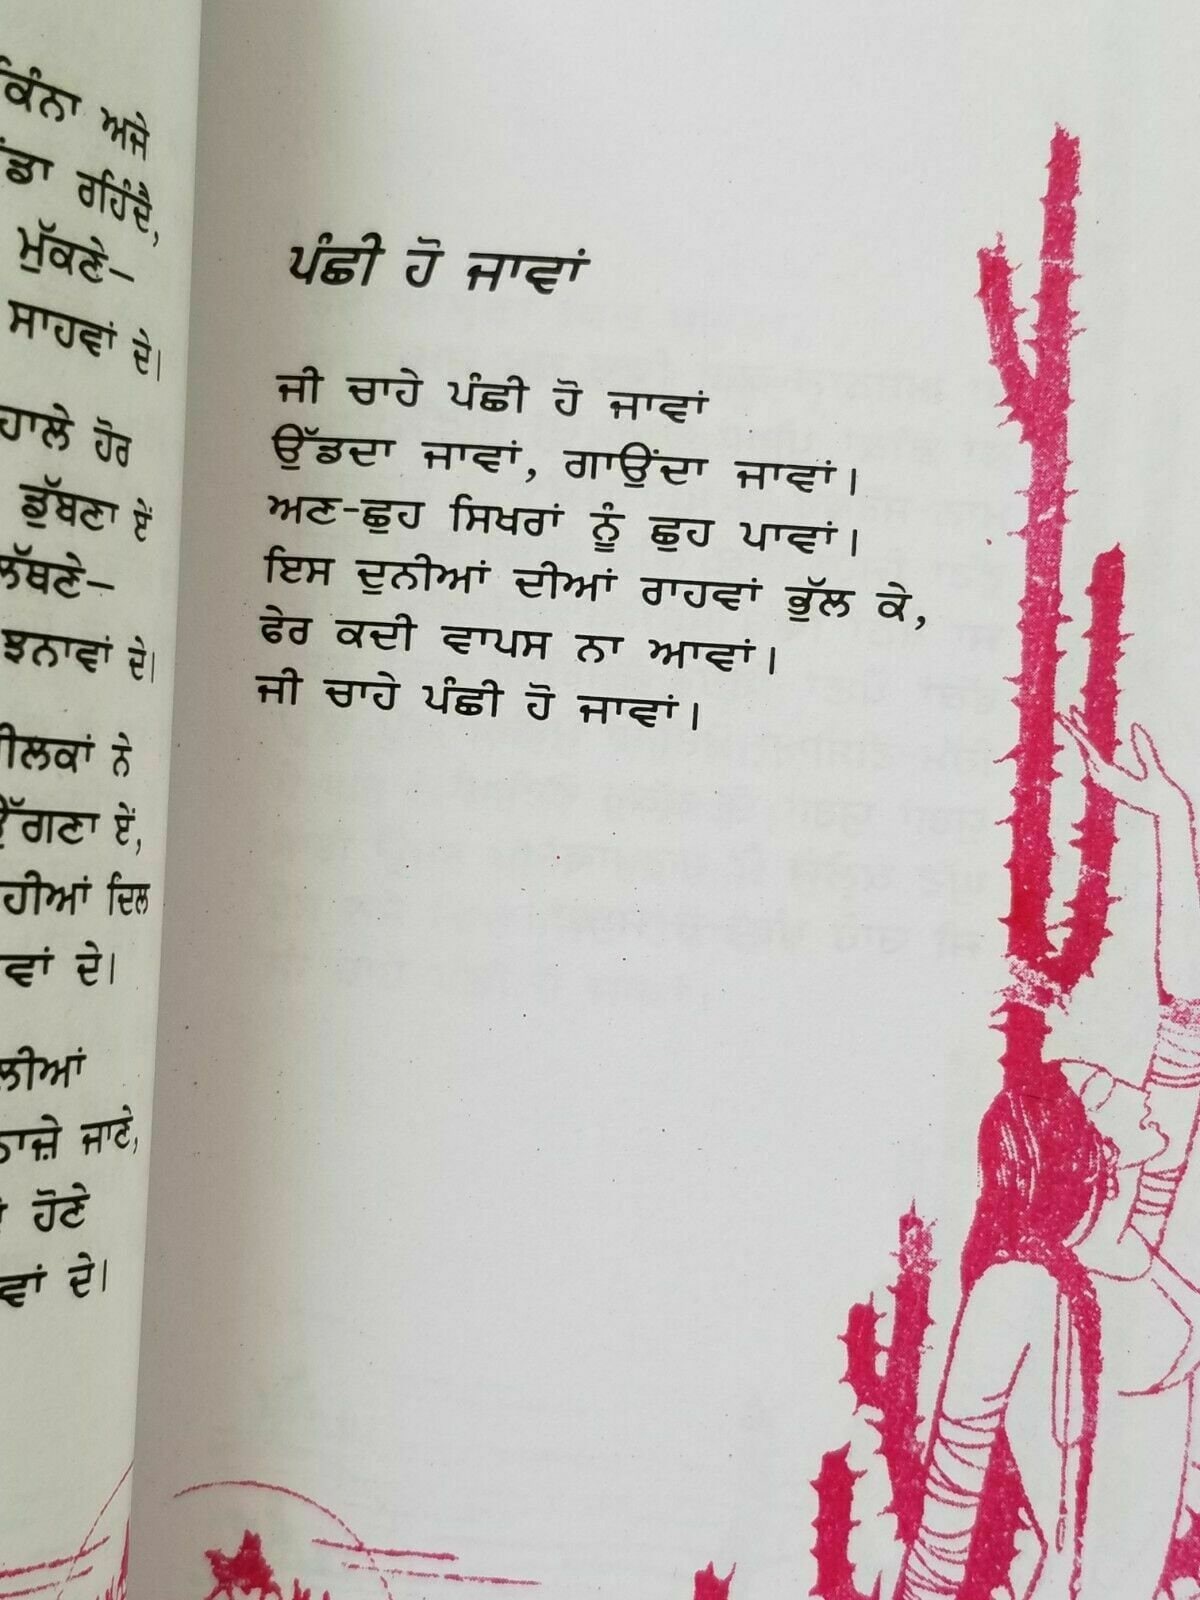 ਕਿੰਨਾ ਅਜੇ
ਰਹਿੰਦੈ,
ਮੁੱਕਣੇ–
ਸਾਹਵਾਂ ਦੇ।
ਹਾਲੇ ਹੋਰ
ਡੁੱਬਣਾ ਏਂ
ਲੱਬਣੇ–
ਝਨਾਵਾਂ ਦੇ।
ਨੇ
ਏਂ,
ਦਿਲ
ਦੇ।
ਜਾਣੇ,
ਹੋਣੇ
ਦੇ।
ਪੰਛੀ ਹੋ ਜਾਵਾਂ
ਜੀ ਚਾਹੇ ਪੰਛੀ ਹੋ ਜਾਵਾਂ
ਉੱਡਦਾ ਜਾਵਾਂ, ਗਾਉਂਦਾ ਜਾਵਾਂ।
ਅਣ-ਛੂਹ ਸਿਖਰਾਂ ਨੂੰ ਛੂਹ ਪਾਵਾਂ।
ਇਸ ਦੁਨੀਆਂ ਦੀਆਂ ਰਾਹਵਾਂ ਭੁੱਲ ਕੇ,
ਫੇਰ ਕਦੀ ਵਾਪਸ ਨਾ ਆਵਾਂ।
ਜੀ ਚਾਹੇ ਪੰਛੀ ਹੋ ਜਾਵਾਂ।